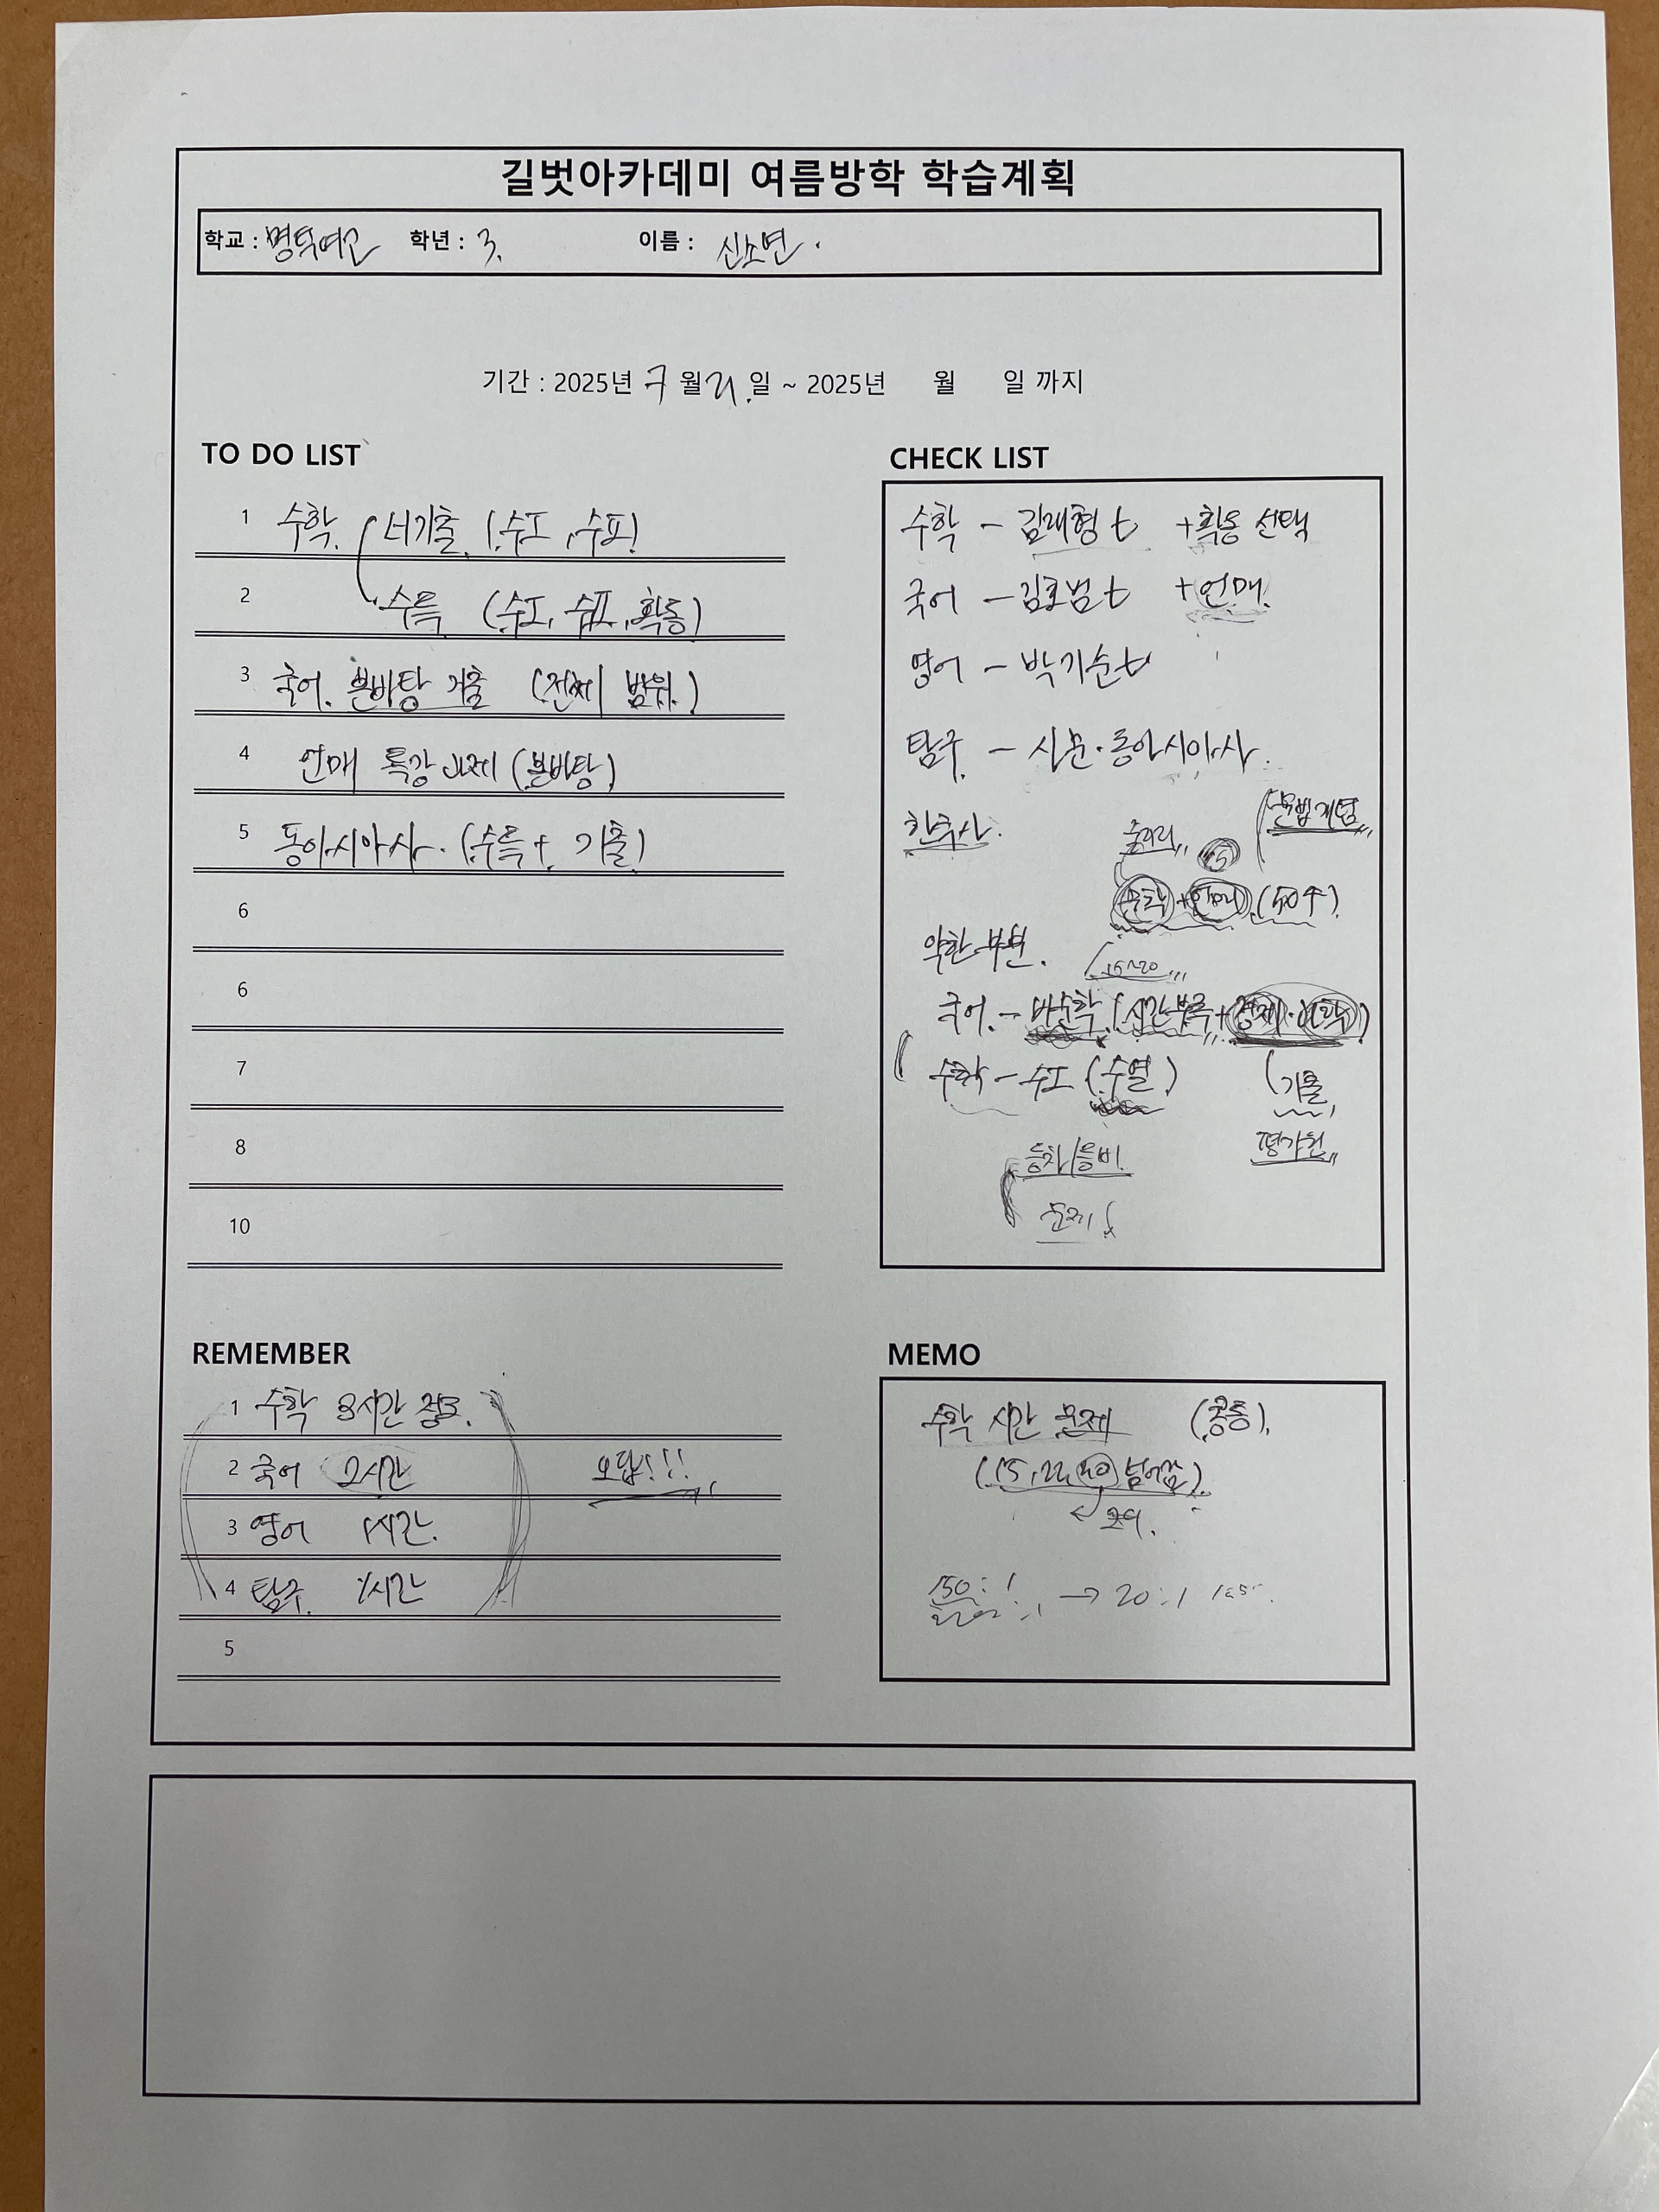 길벗아카데미 여름방학 학습계획
학교 : 명덕여고 학년 : 3. 이름 : 신소연.
기간 : 2025년 7월 21일 ~ 2025년 월 일 까지
TO DO LIST
1 수학. 너기출 (수I, 수II)
2 수특 (수I, 수II, 확통)
3 국어. 본바탕 기출 (전체 범위.)
4 언매 특강 과제 (본바탕)
5 동아시아사. (수특 + 기출)
6
6
7
8
10
CHECK LIST
수학 - 김래형 t +확통 선택
국어 - 김호범 t +언매.
영어 - 박기순 t
탐구. - 사문·동아시아사.
문법개념
15
문학 + 언매 (50分).
약한 부분.
15~20
국어. - 비문학 (시간부족 + 경제·과학)
수학 - 수I (수열)
(기출,
평가원
등차/등비.
문제
REMEMBER
1 수학 3시간 정도.
2 국어 2시간
오답!!!
3 영어 1시간.
4 탐구. 1시간
5
MEMO
수학 시간 문제 (공통),
(15, 22, 넘어감).
150 : 1 → 20 : 1